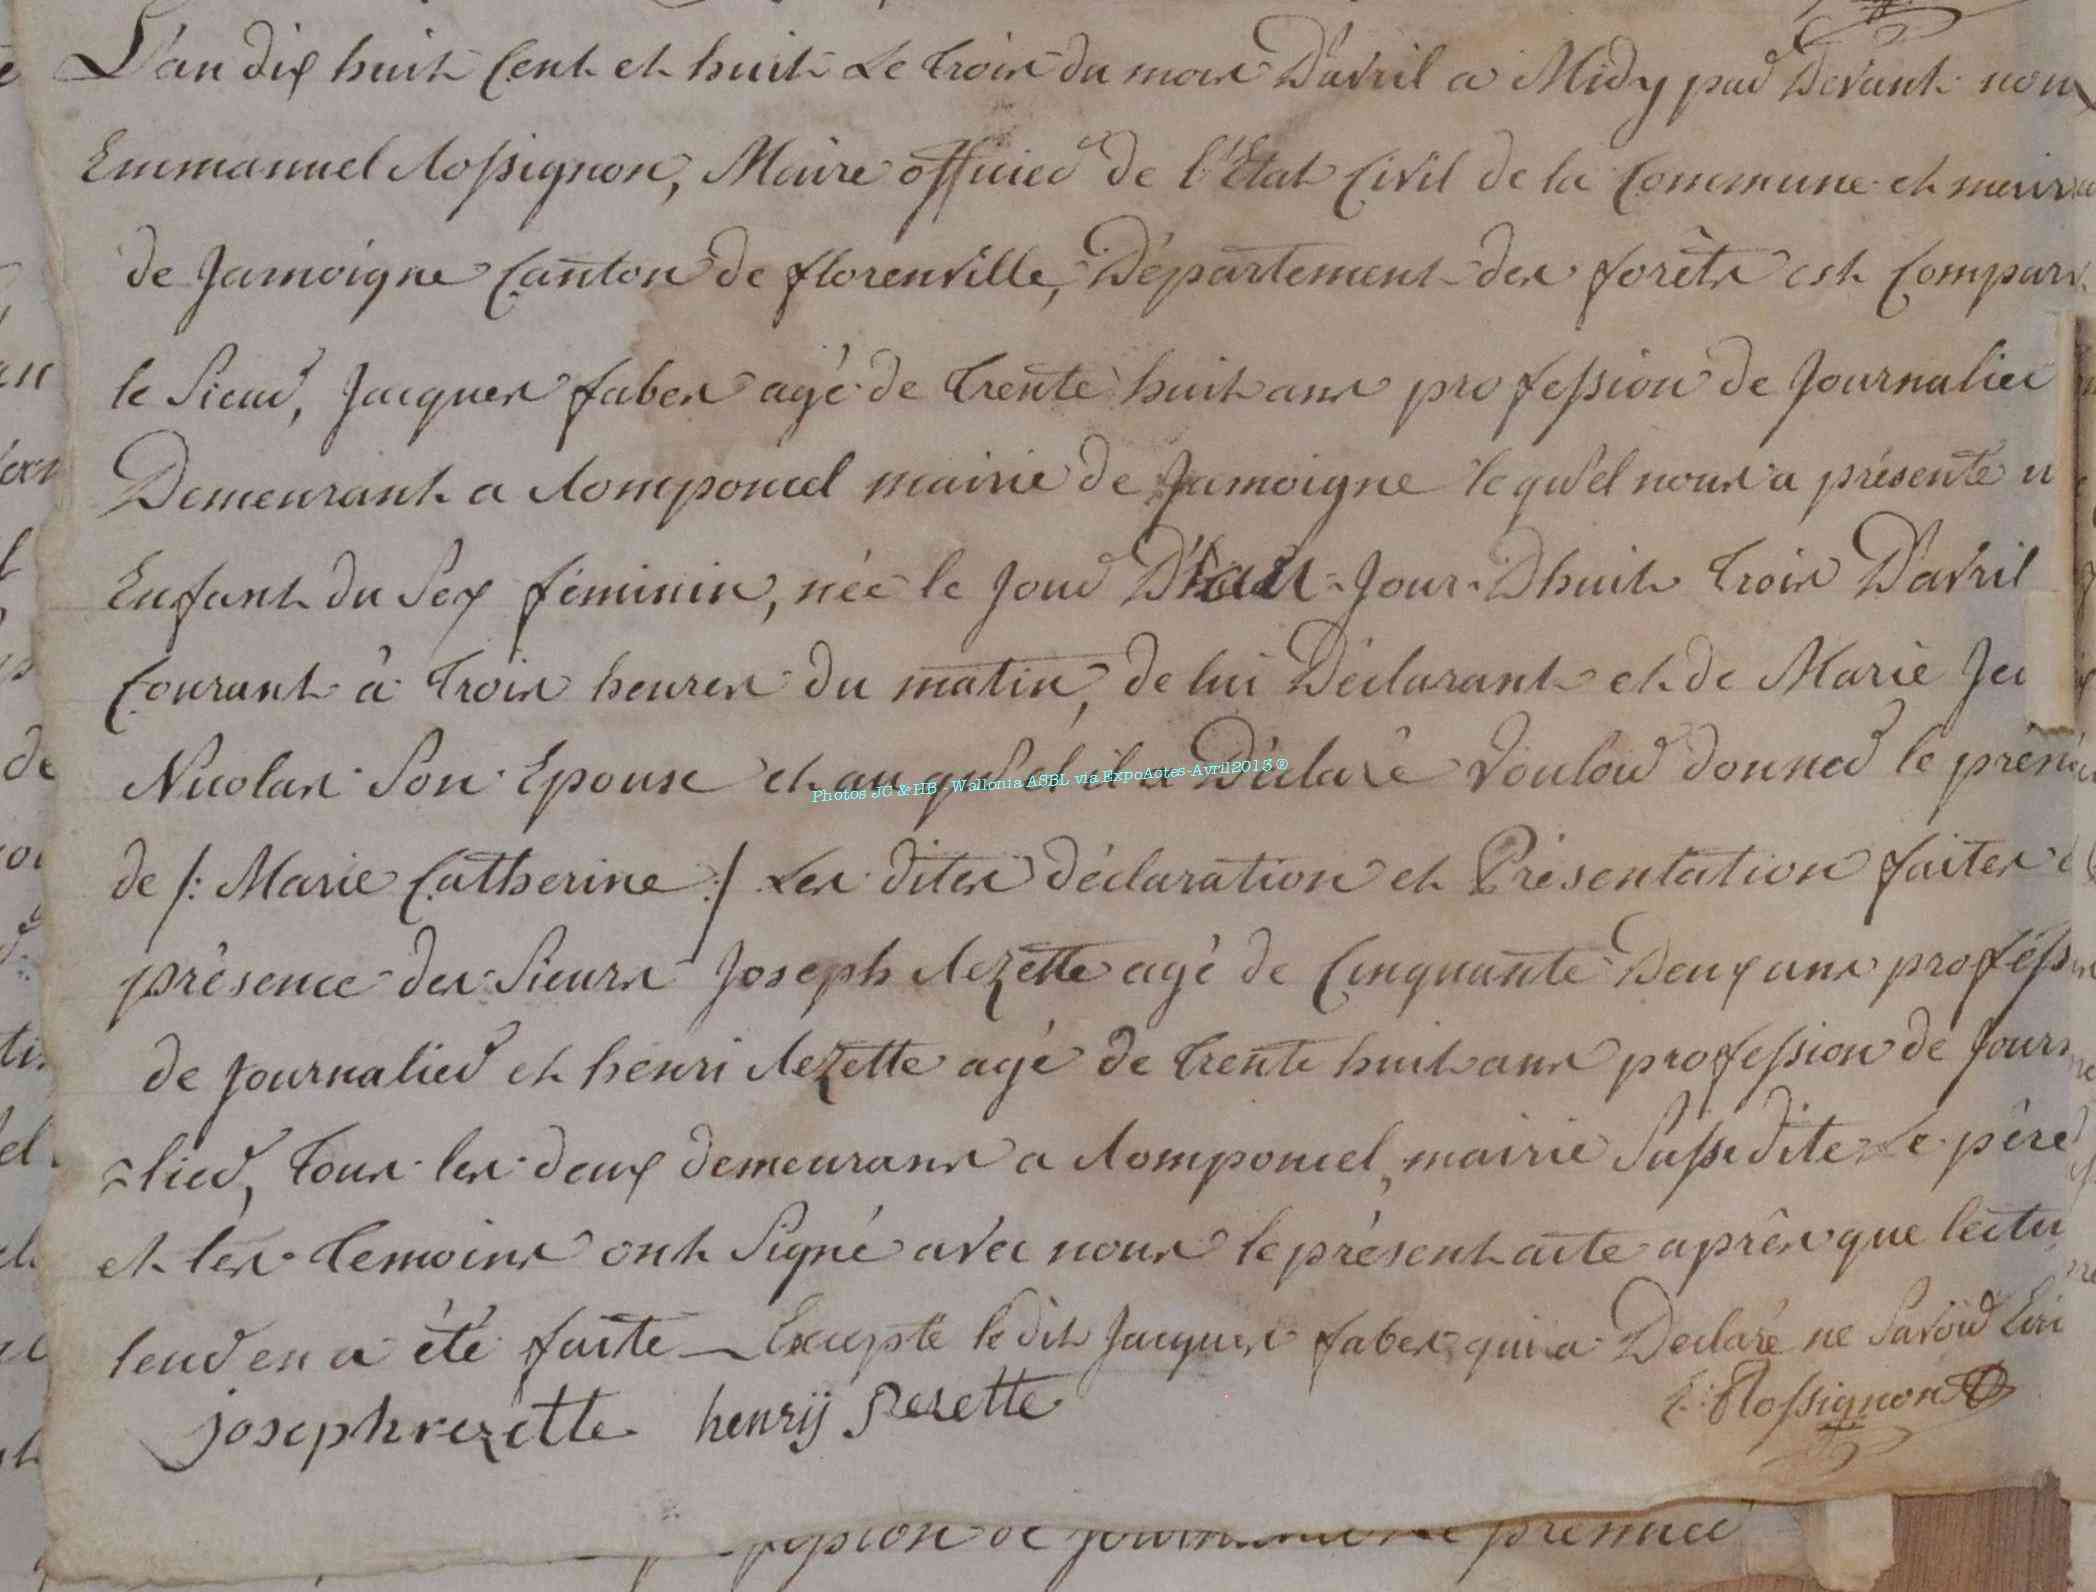 L'an dix huit Cent et huit Le trois du mois D'avril a Midy par Devant nous
Emmanuel Rossignon, Maire officier de l'Etat Civil de la Commune et mairie
de Jamoigne Canton de florenville, Département des forêts est Comparu
le Sieur, Jacques faber agé de trente huit ans profession de Journalier
Demeurant a Romponcel mairie de Jamoigne le qu'el nous a présenté u
Enfant du Sex féminin, née le Jour D'haut-Jour-Dhuit trois D'avril
Courant à trois heures du matin, de lui Déclarant et de Marie Je
Nicolas Son Epouse et au quel il a Déclaré Vouloir donner le prén
de /: Marie Catherine :/ Les dites déclaration et Présentation faites e
présence des Sieurs Joseph Rezette agé de Cinquante Deux ans profess
de Journalier et henri Rezette agé de trente huit ans profession de Journ
=lier, tous les deux demeurans a Romponcel, mairie Sussedite Le père
et les temoins ont Signé avec nous le présent acte après que lectu
leur en a été faite — Excepté le dit Jacques faber qui a Declaré ne Savoir Ecri
joseph rezette henrij Rezette E: Rossignon
Photos JC & HB - Wallonia ASBL via ExpoActes-Avril2013 ®
de Journ